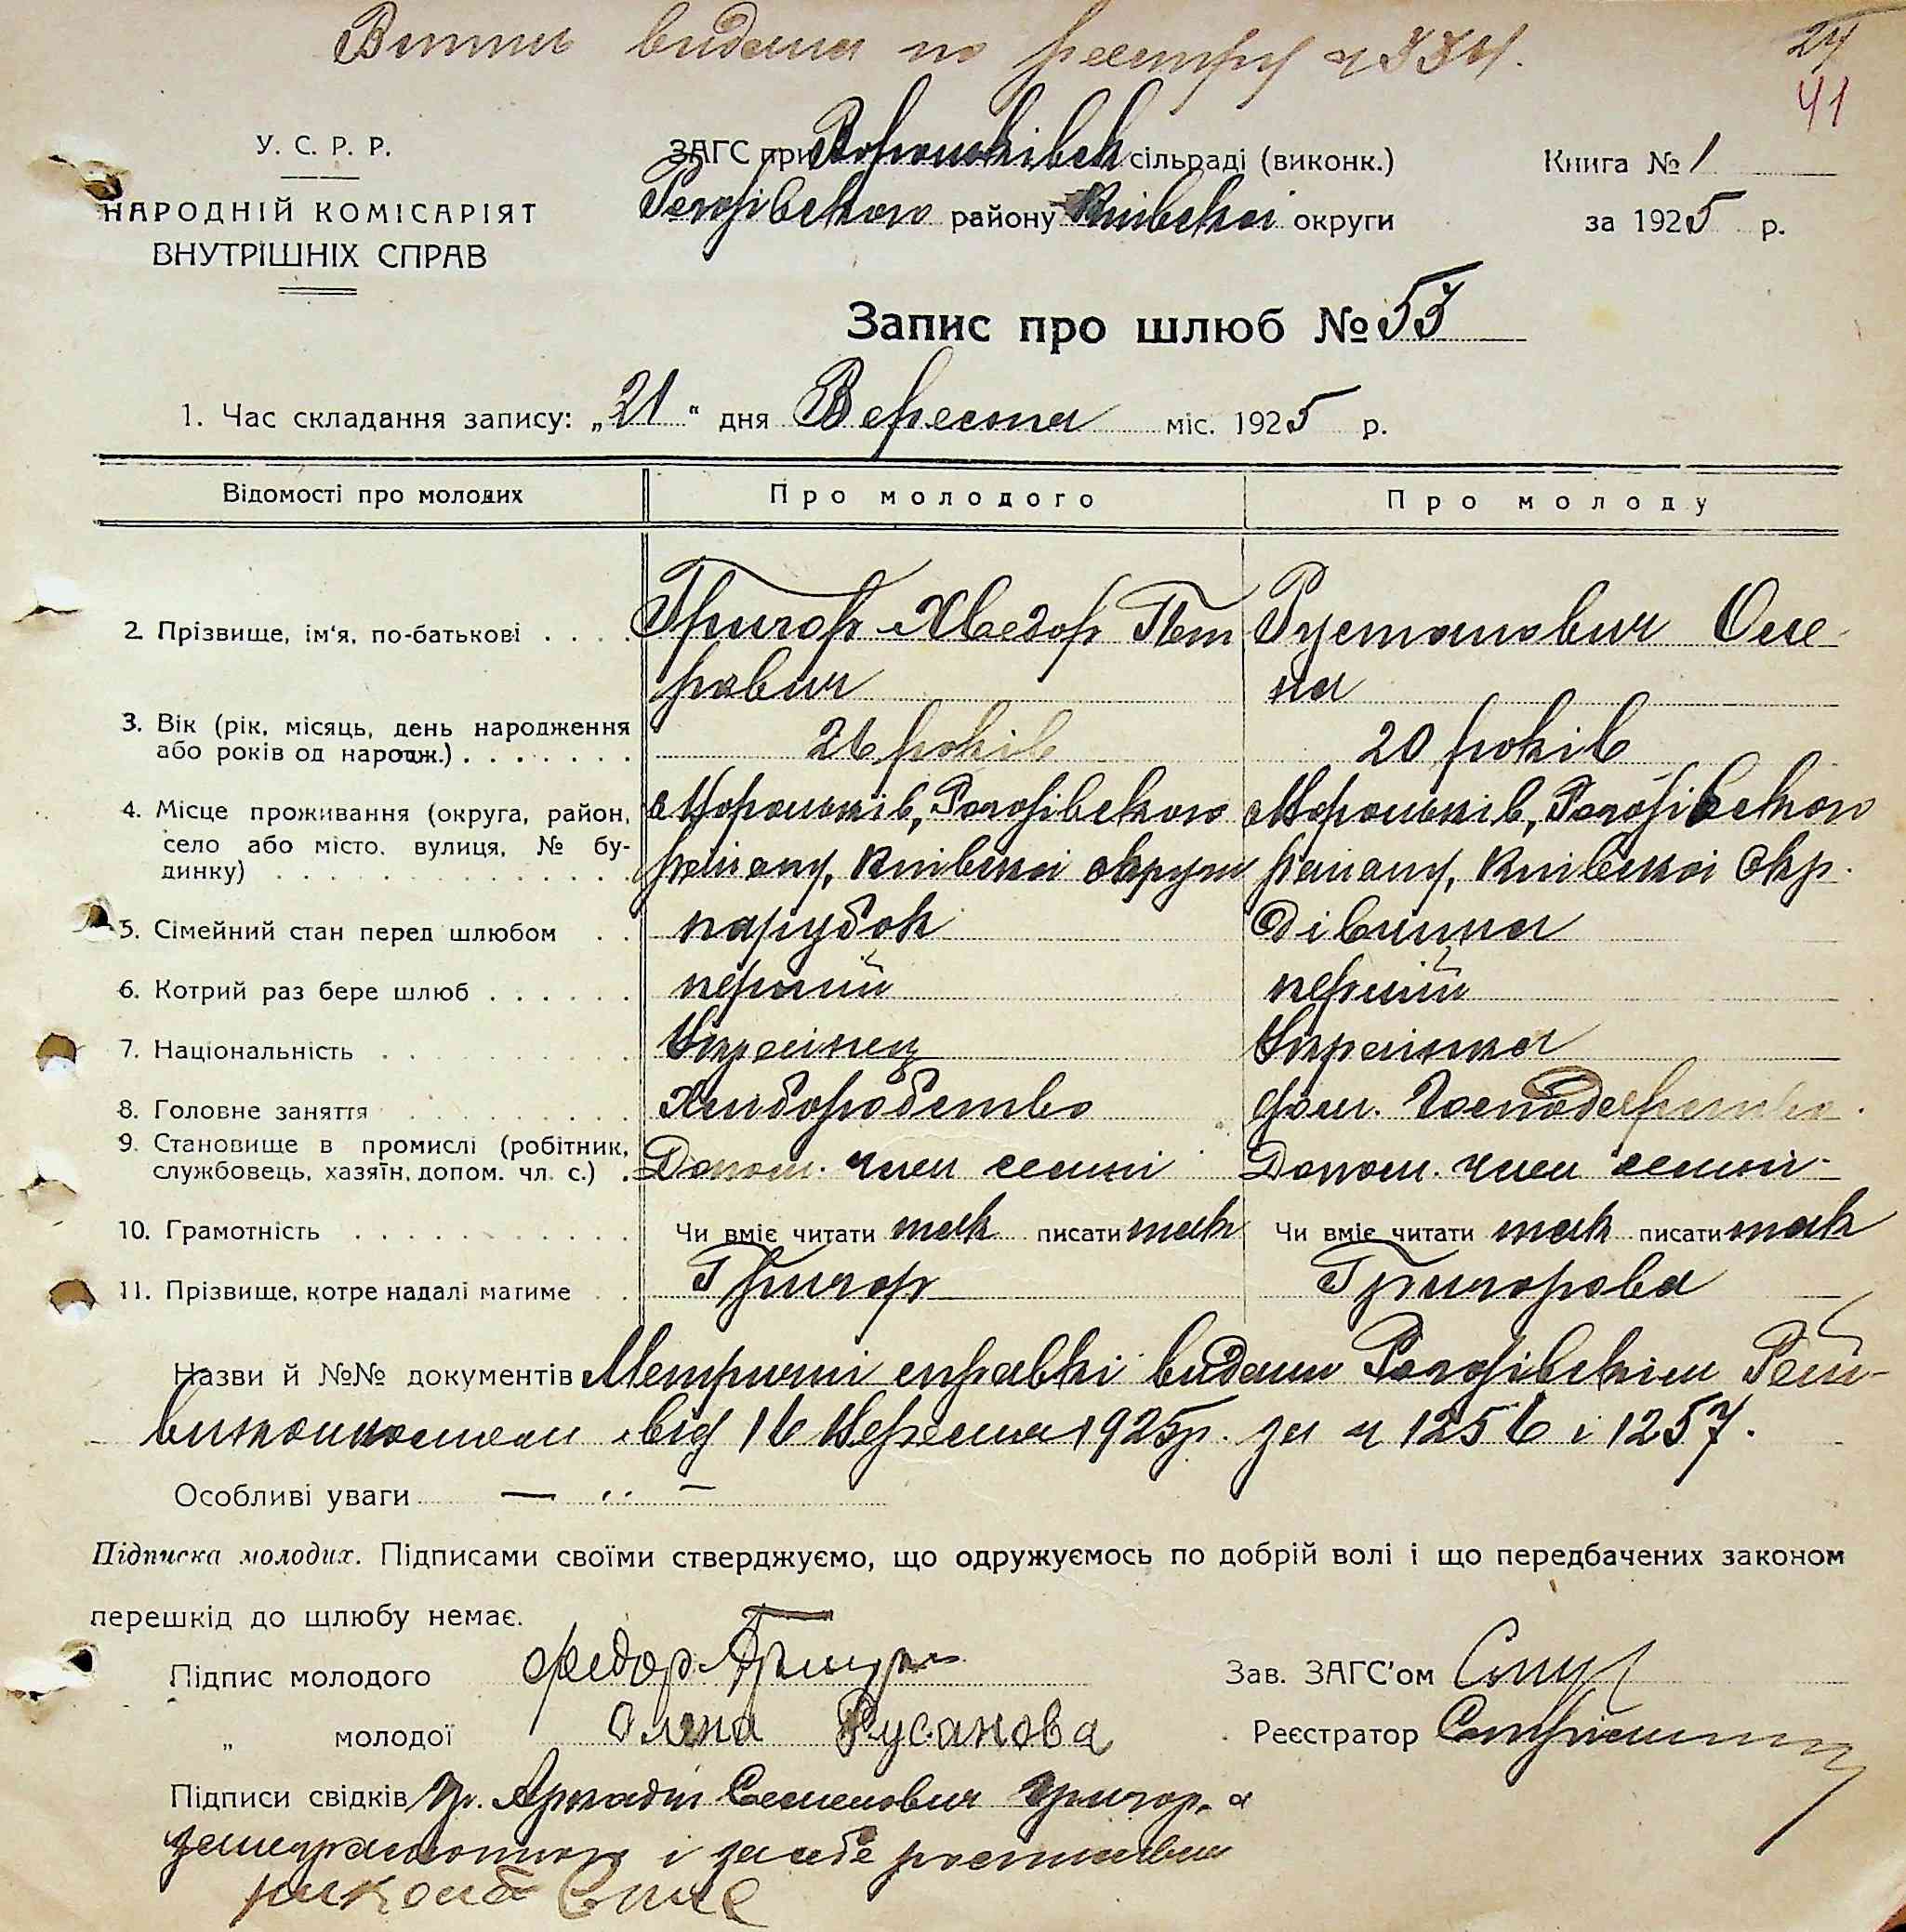 Витяг видана по реєстру №
24
41
У. С. Р. Р.
НАРОДНІЙ КОМІСАРІЯТ
ВНУТРІШНІХ СПРАВ
ЗАГС при Вороньківськ сільраді (виконк.)
Рогозівського району Київської округи
Книга № 1
за 1925 р.
Запис про шлюб № 53
1. Час складання запису: „21" дня Вересня міс. 1925 р.
Відомості про молодих Про молодого Про молоду
2. Прізвище, ім'я, по-батькові . . . . Григор Хведор Пет Русанович Оле-
рович на
3. Вік (рік, місяць, день народження
або років од народж.) . . . . . . . 26 років 20 років
4. Місце проживання (округа, район, с Вороньків, Рогозівського с Вороньків, Рогозівського
село або місто, вулиця, № бу-
динку) . . . . . . . . . . . . . району, Київської округи району, Київської Окр.
5. Сімейний стан перед шлюбом . . парубок Дівчина
6. Котрий раз бере шлюб . . . . . . перший перший
7. Національність . . . . . . . . . . Українец Українка
8. Головне заняття . . . . . . . . . Хліборобство Дом. Господарство.
9. Становище в промислі (робітник,
службовець, хазяїн, допом. чл. с.) . Допом. член семьї Допом. член семьї
10. Грамотність . . . . . . . . . . . Чи вміє читати так писати так Чи вміє читати так писати так
11. Прізвище, котре надалі матиме . . Григор Григорова
Назви й №№ документів Метричні справкі видани Рогозівскім Рай-
виконкомом від 16 Вересня 1925р. за № 1256 і 1257.
Особливі уваги —
Підписка молодих. Підписами своїми стверджуємо, що одружуємось по добрій волі і що передбачених законом
перешкід до шлюбу немає.
Підпис молодого Федор Григор
Зав. ЗАГС'ом
„ молодої Олена Русанова
Реєстратор
Підписи свідків гр. Аркадій Семенович Григор, а
за неграмотного і за себе росписався